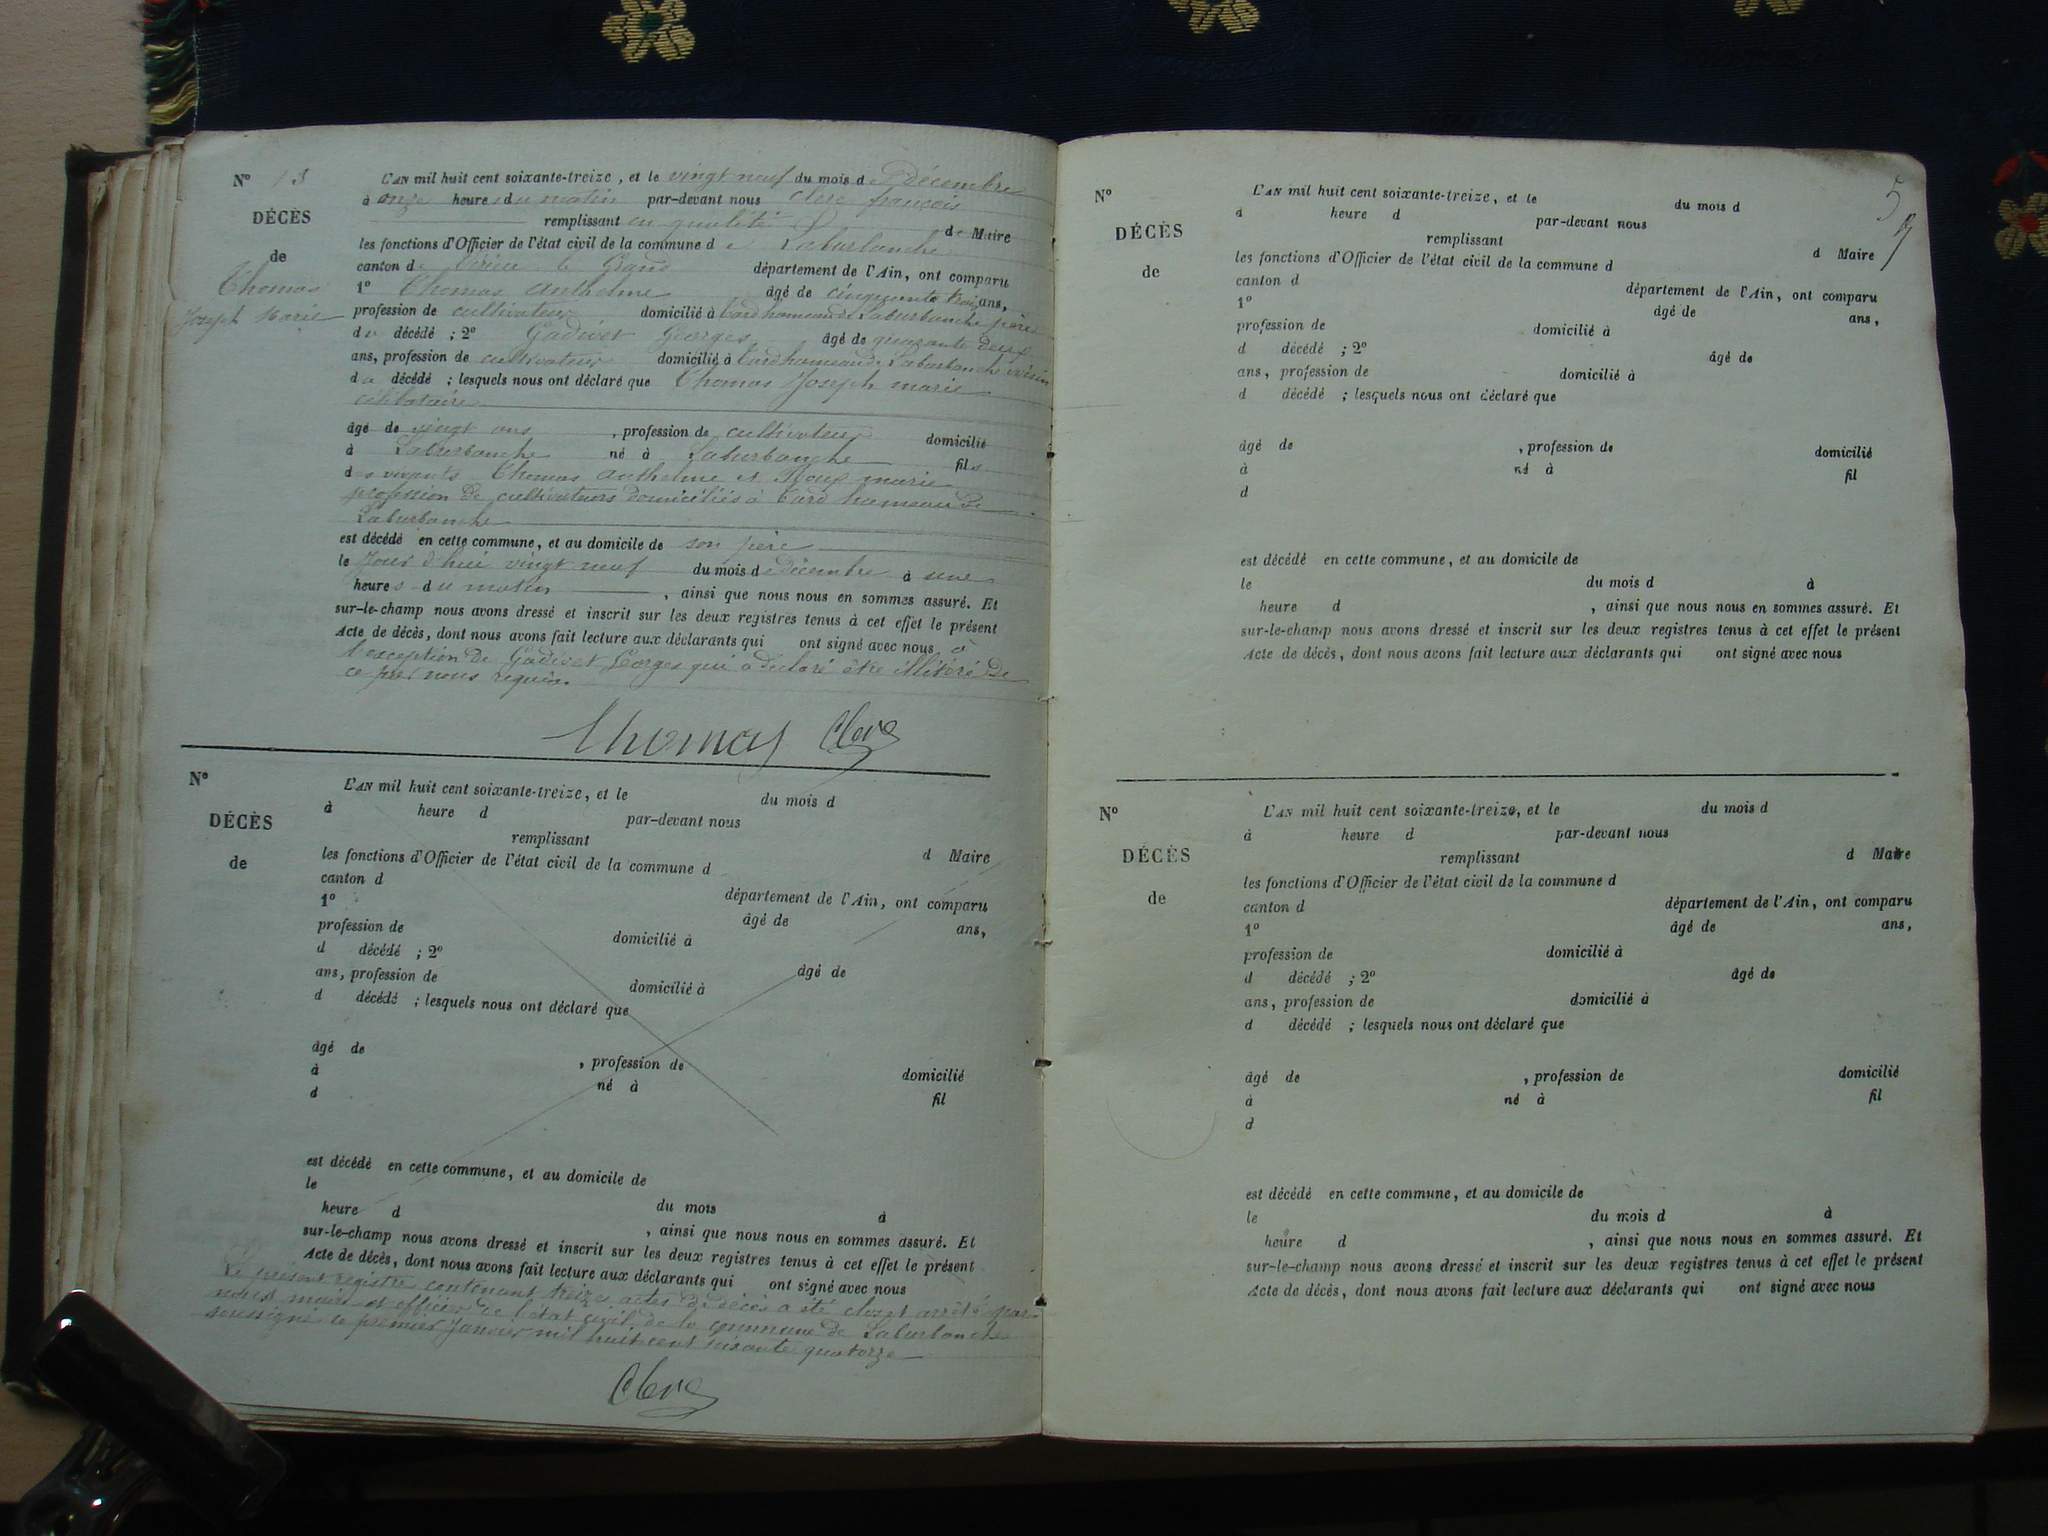 N° 13
DÉCÈS
de
Thomas
Joseph Marie
L'AN mil huit cent soixante-treize, et le vingt neuf du mois de Décembre
à onze heures du matin par-devant nous Clerc françois
remplissant en qualité d de Maire
les fonctions d'Officier de l'état civil de la commune de Laburbanche
canton de Virieu le Grand département de l'Ain, ont comparu
1° Thomas Anthelme âgé de cinquante trois ans,
profession de cultivateur domicilié à hameau de Laburbanche père
du décédé ; 2° Gadivet Georges âgé de quarante deux
ans, profession de cultivateur domicilié à hameau de Laburbanche voisin
du décédé ; lesquels nous ont déclaré que Thomas Joseph marie
célibataire
âgé de vingt ans , profession de cultivateur domicilié
à Laburbanche né à Laburbanche fils
des vivants Thomas Anthelme et Roux marie
profession de cultivateurs domiciliés à hameau de
Laburbanche
est décédé en cette commune, et au domicile de son père
le Jour d'hui vingt neuf du mois de décembre à une
heures du matin , ainsi que nous nous en sommes assuré. Et
sur-le-champ nous avons dressé et inscrit sur les deux registres tenus à cet effet le présent
Acte de décès, dont nous avons fait lecture aux déclarants qui ont signé avec nous à
l'exception de Gadivet Georges qui a déclaré être illitéré de
ce par nous requis.
Thomas Clerc
N°
DÉCÈS
de
L'AN mil huit cent soixante-treize, et le du mois d
à heure d par-devant nous
remplissant d Maire
les fonctions d'Officier de l'état civil de la commune d
canton d département de l'Ain, ont comparu
1° âgé de ans,
profession de domicilié à
d décédé ; 2° âgé de
ans, profession de domicilié à
d décédé ; lesquels nous ont déclaré que
âgé de , profession de domicilié
à né à fil
d
est décédé en cette commune, et au domicile de
le du mois à
heure d , ainsi que nous nous en sommes assuré. Et
sur-le-champ nous avons dressé et inscrit sur les deux registres tenus à cet effet le présent
Acte de décès, dont nous avons fait lecture aux déclarants qui ont signé avec nous
Le présent registre contenant treize actes de décès a été clos et arrêté par
nous maire et officier de l'état civil de la commune de Laburbanche
soussigné ce premier Janvier mil huit cent soixante quatorze
Clerc
5
N°
DÉCÈS
de
L'AN mil huit cent soixante-treize, et le du mois d
à heure d par-devant nous
remplissant d Maire
les fonctions d'Officier de l'état civil de la commune d
canton d département de l'Ain, ont comparu
1° âgé de ans,
profession de domicilié à
d décédé ; 2° âgé de
ans, profession de domicilié à
d décédé ; lesquels nous ont déclaré que
âgé de , profession de domicilié
à né à fil
d
est décédé en cette commune, et au domicile de
le du mois d à
heure d , ainsi que nous nous en sommes assuré. Et
sur-le-champ nous avons dressé et inscrit sur les deux registres tenus à cet effet le présent
Acte de décès, dont nous avons fait lecture aux déclarants qui ont signé avec nous
N°
DÉCÈS
de
L'AN mil huit cent soixante-treize, et le du mois d
à heure d par-devant nous
remplissant d Maire
les fonctions d'Officier de l'état civil de la commune d
canton d département de l'Ain, ont comparu
1° âgé de ans,
profession de domicilié à
d décédé ; 2° âgé de
ans, profession de domicilié à
d décédé ; lesquels nous ont déclaré que
âgé de , profession de domicilié
à né à fil
d
est décédé en cette commune, et au domicile de
le du mois d à
heure d , ainsi que nous nous en sommes assuré. Et
sur-le-champ nous avons dressé et inscrit sur les deux registres tenus à cet effet le présent
Acte de décès, dont nous avons fait lecture aux déclarants qui ont signé avec nous